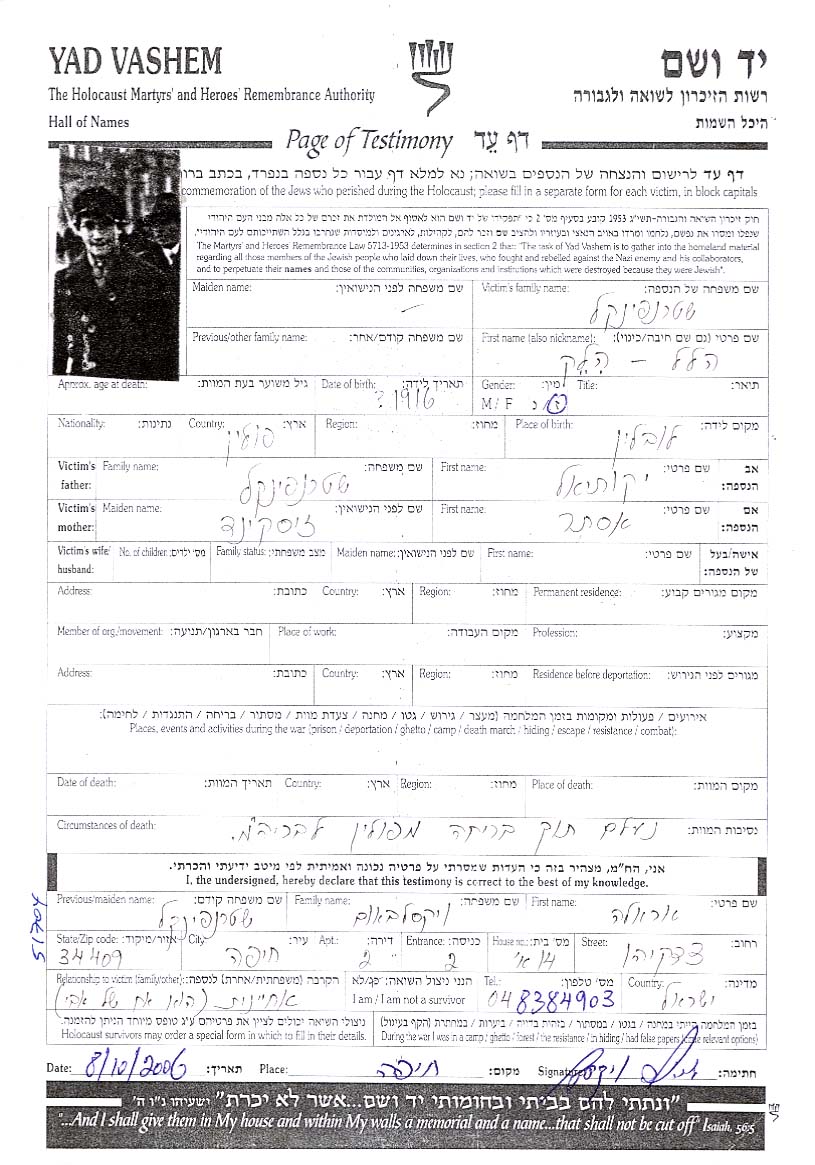 YAD VASHEM
יד ושם
The Holocaust Martyrs' and Heroes' Remembrance Authority
רשות הזיכרון לשואה ולגבורה
Hall of Names
היכל השמות
Page of Testimony דף עֵד
דף עד לרישום והנצחה של הנספים בשואה; נא למלא דף עבור כל נספה בנפרד, בכתב ברו
commemoration of the Jews who perished during the Holocaust; please fill in a separate form for each victim, in block capitals
חוק זיכרון השואה והגבורה-תשי"ג 1953 קובע בסעיף מס' 2 כי "תפקידו של יד ושם הוא לאסוף אל המולדת את זכרם של כל אלה מבני העם היהודי
שנפלו ומסרו את נפשם, נלחמו ומרדו באויב הנאצי ובעוזריו ולהציב שם וזכר להם, לקהילות, לארגונים ולמוסדות שנחרבו בגלל השתייכותם לעם היהודי".
The Martyrs' and Heroes' Remembrance Law 5713-1953 determines in section 2 that: "The task of Yad Vashem is to gather into the homeland material
regarding all those members of the Jewish people who laid down their lives, who fought and rebelled against the Nazi enemy and his collaborators,
and to perpetuate their names and those of the communities, organizations and institutions which were destroyed because they were Jewish".
Maiden name: שם משפחה לפני הנישואין: Victim's family name: שם משפחה של הנספה:
שטרנפינקל
Previous/other family name: שם משפחה קודם/אחר: First name (also nickname): שם פרטי (גם שם חיבה/כינוי):
הלל -
Approx. age at death: גיל משוער בעת המוות: Date of birth: תאריך לידה: Gender: מין: Title: תואר:
1916 ? M / F ז נ
Nationality: נתינות: Country: ארץ: Region: מחוז: Place of birth: מקום לידה:
פולין לובלין
Victim's father: Family name: שם משפחה: First name: שם פרטי: אב הנספה:
שטרנפינקל יקותיאל
Victim's mother: Maiden name: שם לפני הנישואין: First name: שם פרטי: אם הנספה:
זיסקינד אסתר
Victim's wife/ husband: No. of children: מס' ילדים: Family status: מצב משפחתי: Maiden name: שם לפני הנישואין: First name: שם פרטי: אישה/בעל של הנספה:
Address: כתובת: Country: ארץ: Region: מחוז: Permanent residence: מקום מגורים קבוע:
Member of org./movement: חבר בארגון/תנועה: Place of work: מקום העבודה: Profession: מקצוע:
Address: כתובת: Country: ארץ: Region: מחוז: Residence before deportation: מגורים לפני הגירוש:
אירועים / פעולות ומקומות בזמן המלחמה (מעצר / גירוש / גטו / מחנה / צעדת מוות / מסתור / בריחה / התנגדות / לחימה):
Places, events and activities during the war (prison / deportation / ghetto / camp / death march / hiding / escape / resistance / combat):
Date of death: תאריך המוות: Country: ארץ: Region: מחוז: Place of death: מקום המוות:
Circumstances of death: נסיבות המוות:
נעלם תוך בריחה מפולין לבריה"מ.
אני, הח"מ, מצהיר בזה כי העדות שמסרתי על פרטיה נכונה ואמיתית לפי מיטב ידיעתי והכרתי.
I, the undersigned, hereby declare that this testimony is correct to the best of my knowledge.
Previous/maiden name: שם משפחה קודם: Family name: שם משפחה: First name: שם פרטי:
שטרנפינקל ויקסלבאום אוראלה
State/Zip code: אזור/מיקוד: City: עיר: Apt.: דירה: Entrance: כניסה: House no.: מס' בית: Street: רחוב:
34409 חיפה 2 2 14 א' צדקיהו
Relationship to victim (family/other): הקרבה (משפחתית/אחרת) לנספה: הנני ניצול השואה: כן/לא Tel.: מס' טלפון: Country: מדינה:
אחיינית (הוא אח של אבי) I am / I am not a survivor 048384903 ישראל
ניצולי השואה יכולים לציין את פרטיהם ע"ג טופס מיוחד הניתן להזמנה.
Holocaust survivors may order a special form in which to fill in their details.
בזמן המלחמה הייתי במחנה / בגטו / במסתור / בזהות בדויה / ביערות / במחתרת (הקף בעיגול)
During the war I was in a camp / ghetto / forest / the resistance / in hiding / had false papers relevant options)
Date: 8/10/2006 תאריך: Place: חיפה מקום: Signature חתימה:
51704
"ונתתי להם בביתי ובחומותי יד ושם...אשר לא יכרת" ישעיהו נ"ו ה'
"...And I shall give them in My house and within My walls a memorial and a name...that shall not be cut off" Isaiah, 56:5